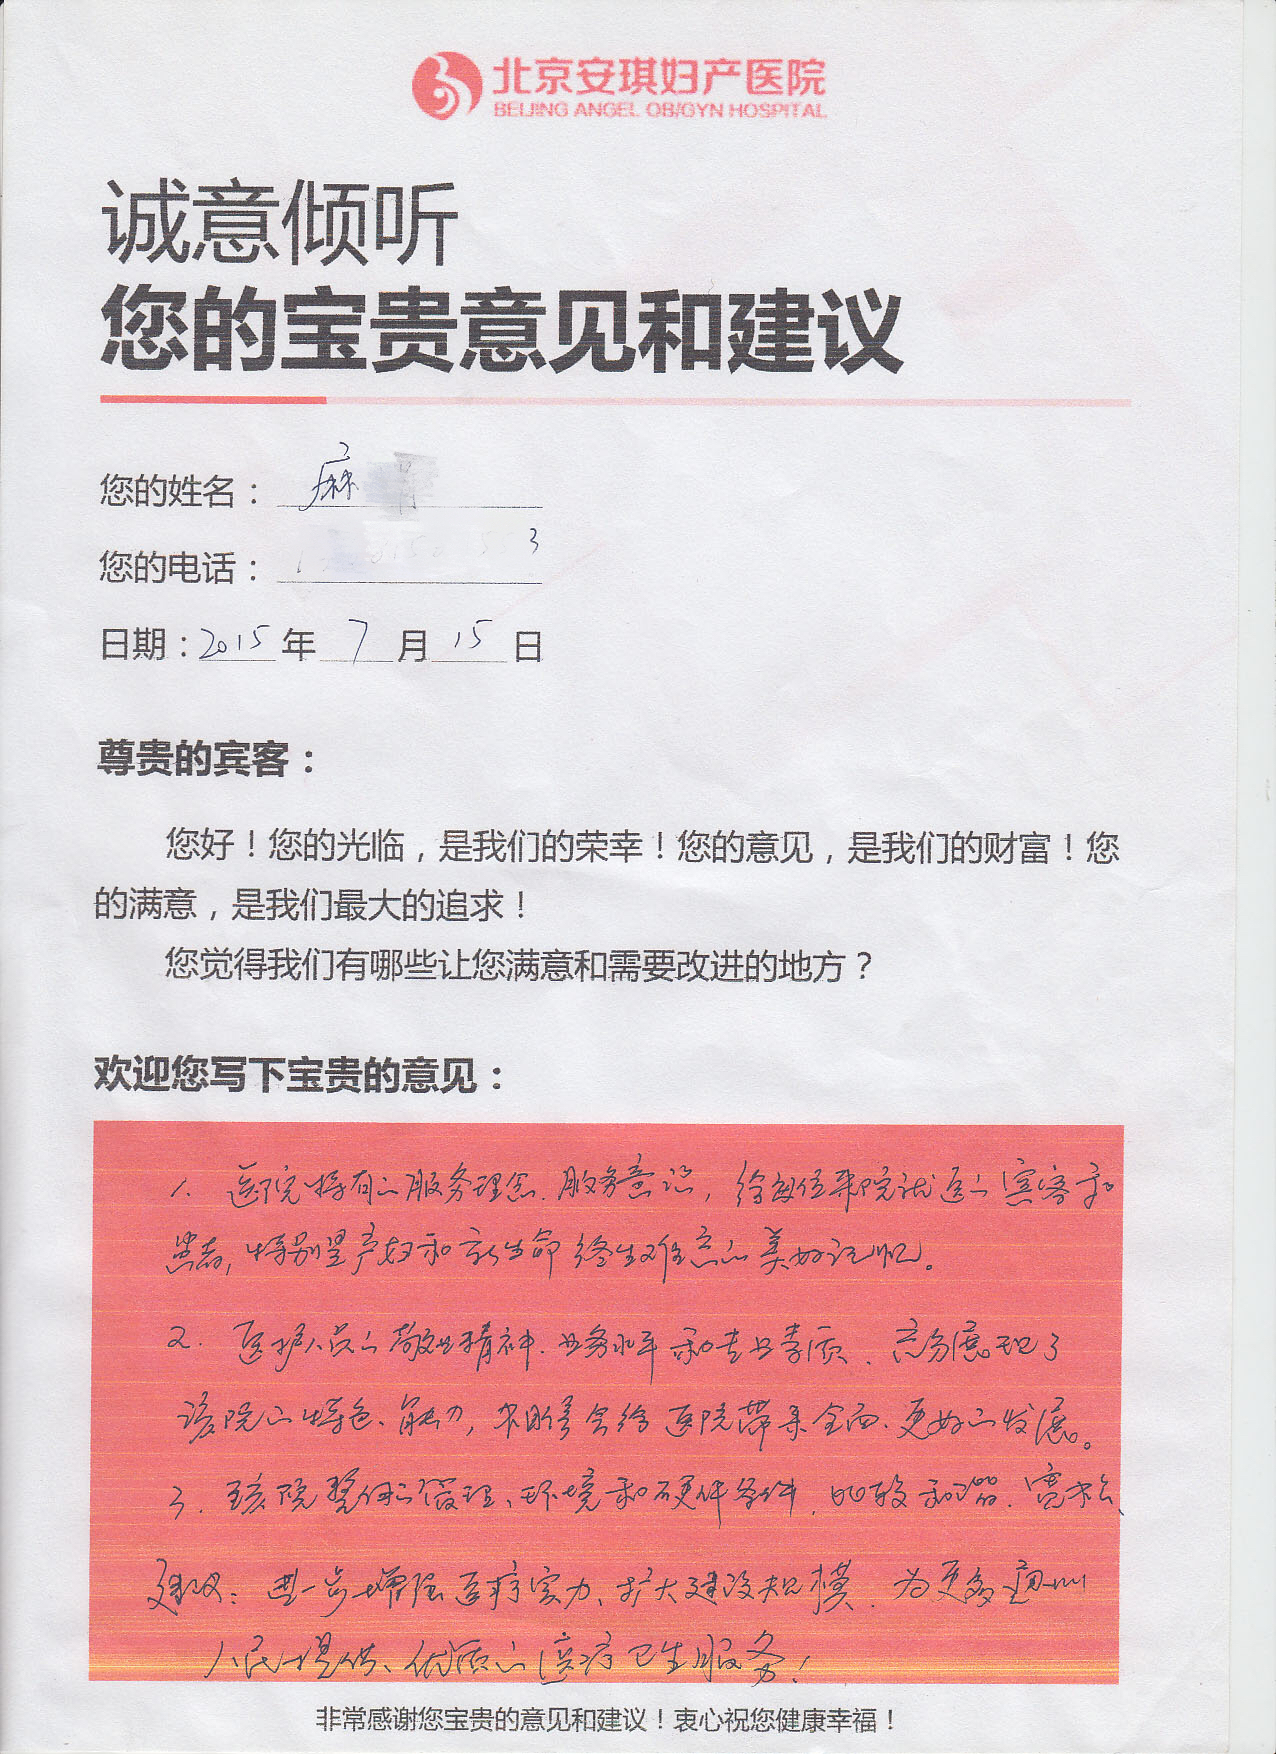 北京安琪妇产医院
BEIJING ANGEL OB/GYN HOSPITAL
诚意倾听
您的宝贵意见和建议
您的姓名：麻
您的电话：1 3
日期：2015年7月15日
尊贵的宾客：
您好！您的光临，是我们的荣幸！您的意见，是我们的财富！您
的满意，是我们最大的追求！
您觉得我们有哪些让您满意和需要改进的地方？
欢迎您写下宝贵的意见：
1. 医院特有的服务理念、服务意识，给每位来院就医的宾客和
患者，特别是产妇和新生命终生难忘的美好记忆。
2. 医护人员的敬业精神、业务水平和专业素质，充分展现了
该院的特色、能力，相信会给医院带来全面、更好的发展。
3. 该院整体的管理、环境和硬件条件，比较和谐、宽松、
建议：进一步增强医疗实力、扩大建设规模，为更多
人民提供、优质的医疗卫生服务！
非常感谢您宝贵的意见和建议！衷心祝您健康幸福！